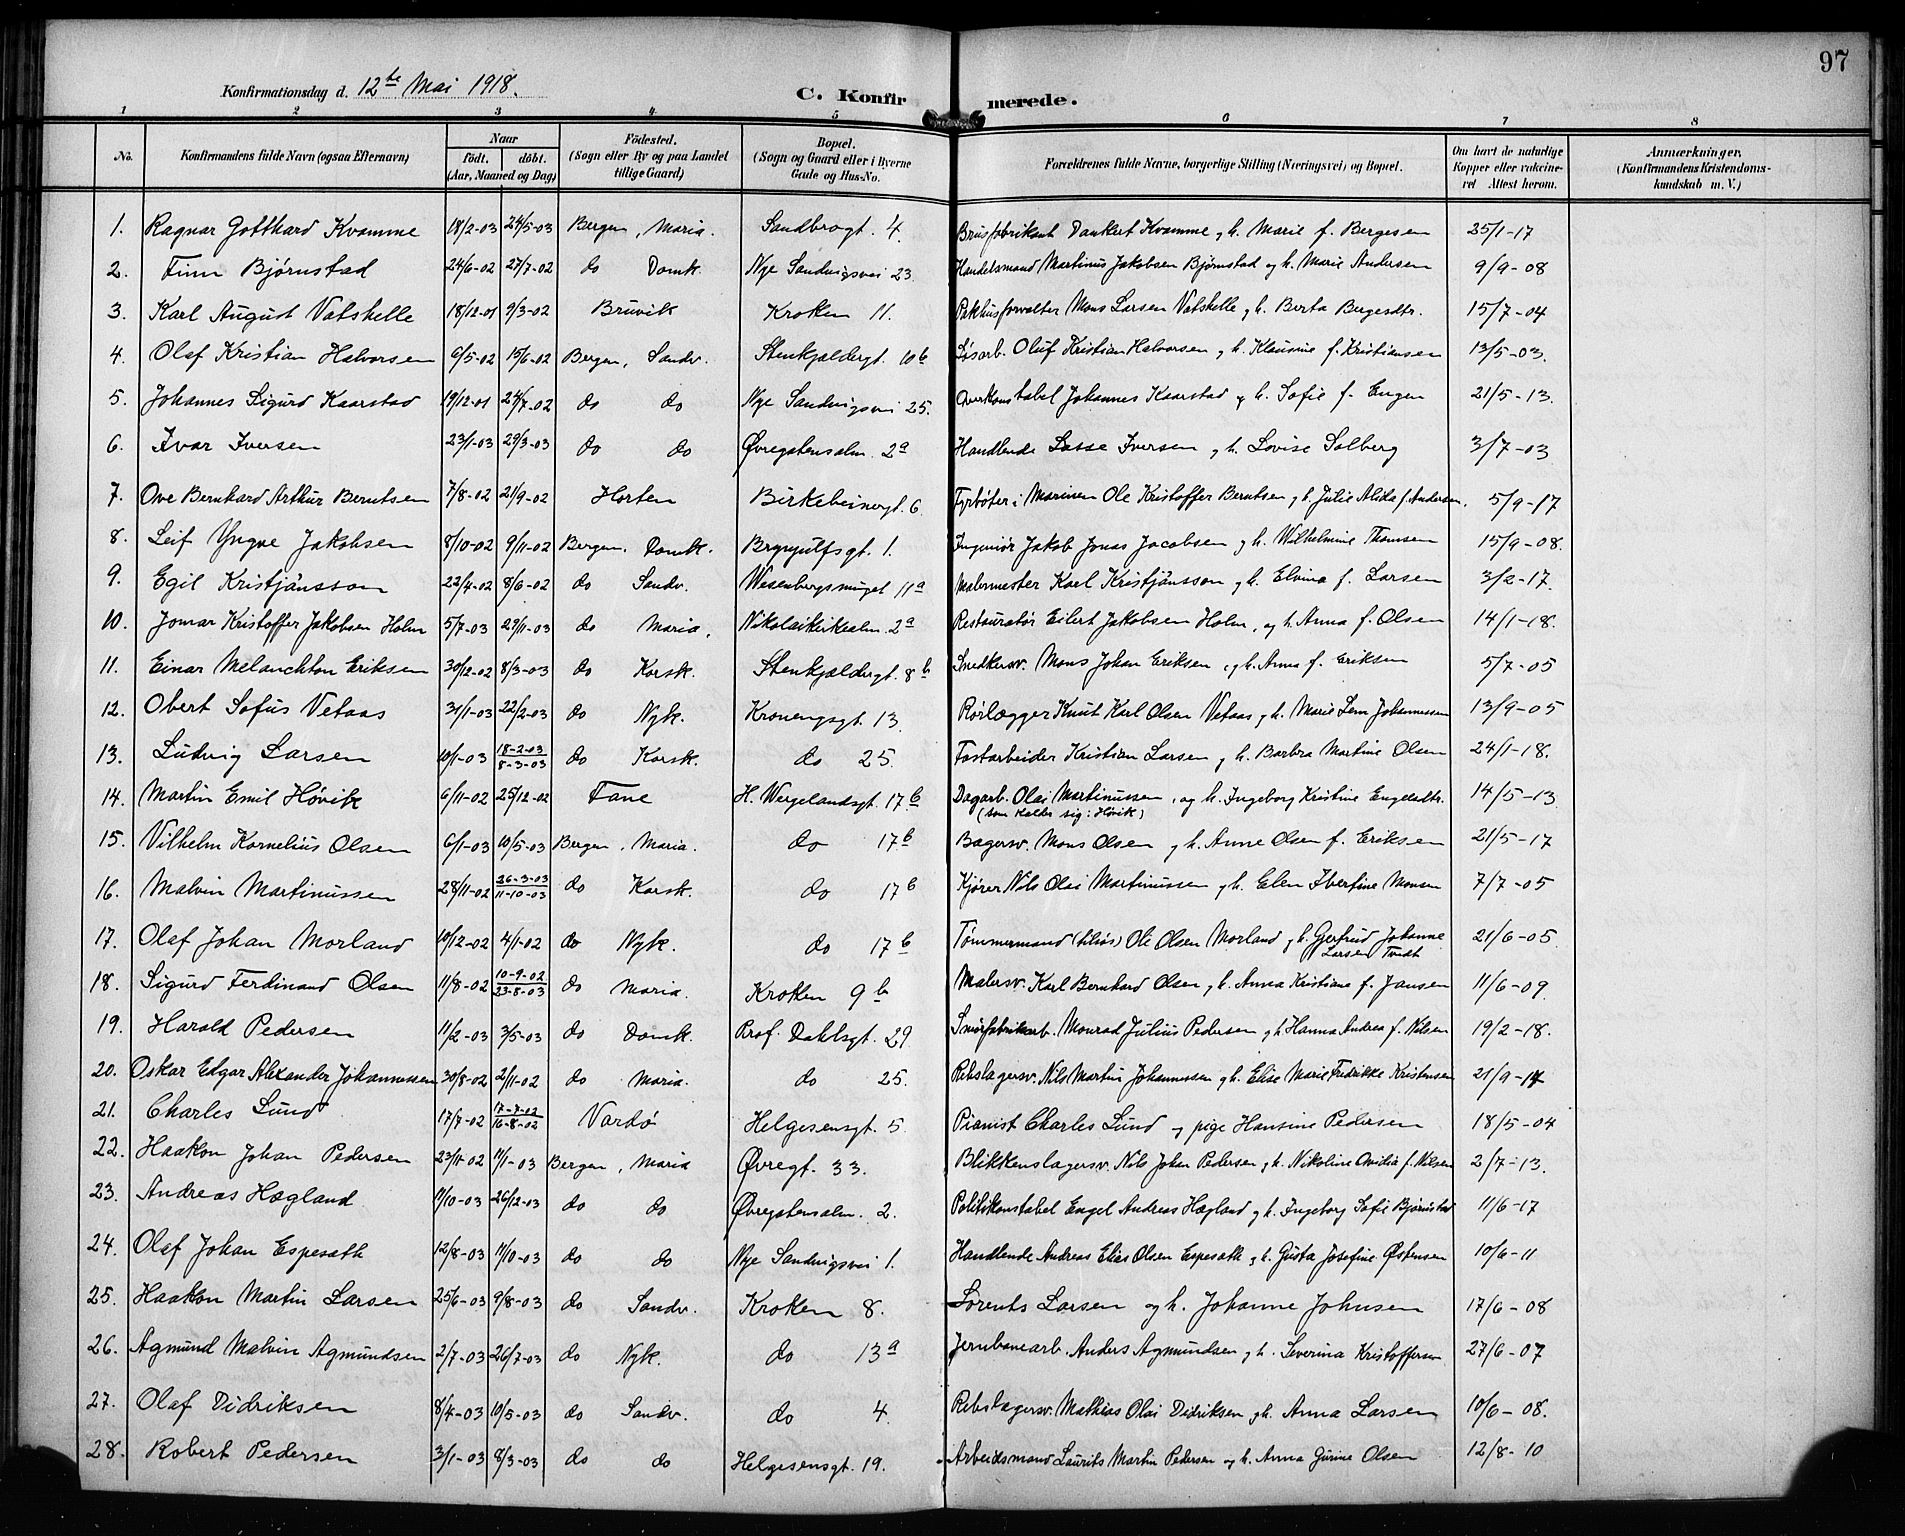 97
Konfirmationsdag d. 12te Mai 1918. C. Konfirmerede.
1 2 3 4 5 6 7 8
No. Konfirmandens fulde Navn (ogsaa Efternavn) Naar födt. döbt. (Aar, Maaned og Dag) Födested. (Sogn eller By og paa Landet tillige Gaard) Bopæl. (Sogn og Gaard eller i Byerne Gade og Hus-No. Forældrenes fulde Navne, borgerlige Stilling (Næringsvei) og Bopæl. Om havt de naturlige Kopper eller vakcineret Attest herom. Anmærkninger, (Konfirmandens Kristendomskundskab m. V.)
1. Ragnar Gotthard Kvamme 18/2-03 24/5-03 Bergen, Maria. Sandbrogt. 4. Brusfabrikant Dankert Kvamme og h. Marie f. Bergesen 25/1-17
2. Finn Bjørnstad 24/6-02 27/7-02 do Domk. Nye Sandvigsvei 23. Handelsmand Martinus Jakobsen Bjørnstad og h. Marie Andersen 9/9-08
3. Karl August Vatshelle 18/12-01 9/3-02 Bruvik Kroken 11. Pakhusforvalter Mons Larsen Vatshelle og h. Berta Bergesdtr. 15/7-04
4. Olaf Kristian Halvorsen 6/5-02 15/6-02 Bergen, Sandv. Stenkjeldergt. 10b Løsarb. Oluf Kristian Halvorsen og h. Klausine f. Kristiansen 13/5-03.
5. Johannes Sigurd Kaarstad 19/12-01 24/7-02 do do Nye Sandvigsvei 25. Overkonstabel Johannes Kaarstad og h. Sofie f. Engen 21/5-13.
6. Ivar Iversen 23/1-03 29/3-03 do do Øvregatensalm. 2a Handlende Lasse Iversen og h. Lovise Solberg 3/7-03
7. Ove Bernhard Arthur Berntsen 7/8-02 21/9-02 Horten Birkebeinergt. 6. Fyrbøter i Marinen Ole Kristoffer Berntsen og h. Julie Alida f. Andersen. 5/9-17
8. Leif Yngve Jakobsen 8/10-02 9/11-02 Bergen, Domk. Brynjulfsgt. 1. Ingeniør Jakob Jonas Jacobsen og h. Wilhelmine Thomsen 15/9-08.
9. Egil Kristjánsson 22/4-02 8/6-02 do Sandv. Wesenbergsmuget 11a Malermester Karl Kristjánsson og h. Elvina f. Larsen 3/2-17.
10. Jomar Kristoffer Jakobsen Holm 5/7-03 29/11-03 do Maria. Nikolaikirkealm. 2a Restauratør Eilert Jakobsen Holm, og h. Anna f. Olsen 14/1-18.
11. Einar Melanchton Eriksen 30/12-02 8/3-03 do Korsk. Stenkjeldergt. 8b Snedkersv. Mons Johan Eriksen, og h. Anna f. Eriksen 5/7-05
12. Obert Sofus Vetaas 31/1-03 22/2-03 do Nyk. Kronengsgt. 13. Rørlægger Knut Karl Olsen Vetaas og h. Marie Lem Johannessen 13/9-05
13. Ludvig Larsen 10/1-03 18-2-03 8-3-03 do Korsk. do 25. Fastarbeider Kristian Larsen og h. Barbra Martine Olsen 24/1-18.
14. Martin Emil Høvik 6/11-02 25/12-02 Fane H. Wergelandsgt. 17b Dagarb. Olai Martinussen, og h. Ingeborg Kristine Engelsdtr. 14/5-13
(som kalder sig: Høvik)
15. Vilhelm Kornelius Olsen 6/1-03 10/5-03 Bergen, Maria. do 17b Bagersv. Mons Olsen og h. Anne Olsen f. Eriksen 21/5-17
16. Malvin Martinussen 28/11-02 26-3-03 11-10-03 do Korsk. do 17b Kjører Nils Olai Martinussen og h. Elen Ibertine Monsen 7/7-05
17. Olaf Johan Morland 10/12-02 4/1-02 do Nyk. do 17b Tømmermand Ole Olsen Morland og h. Gertrud Johanne Larsen Tvedt 21/6-05.
18. Sigurd Ferdinand Olsen 11/8-02 10-9-02 23-8-03 do Maria. Kroken 9b Malersv. Karl Bernhard Olsen og h. Anna Kristiane f. Jansen 11/6-09.
19. Harald Pedersen 11/2-03 3/5-03 do Domk. Prof. Dahlsgt. 29. Smørfabrikarb. Monrad Julius Pedersen og h Hanna Andrea f. Nilsen 19/2-18.
20. Oskar Edgar Alexander Johannessen 30/8-02 2/11-02 do Maria. do 25. Rebslagersv. Nils Martin Johannessen og h. Elise Marie Fredrikke Kristensen 21/9-17
21. Charles Lund 17/7-02 17-7-02 16-8-02 Vardø Helgesensgt. 5. Pianist Charles Lund og pige Hansine Pedersen 18/5-04
22. Haakon Johan Pedersen 23/11-02 11/1-03 Bergen, Maria Øvregt. 33. Blikkenslagersv. Nils Johan Pedersen og h. Nikoline Ovidia f. Nilsen 2/7-13.
23. Andreas Hægland 11/10-03 26/12-03 do do Øvregatensalm. 2. Politikonstabel Engel Andreas Hægland og h. Ingeborg Sofie Bjørnstad 11/6-17
24. Olaf Johan Espesæth 12/8-03 11/10-03 do do Nye Sandvigsvei 1. Handlende Andreas Elias Olsen Espesæth og h. Gusta Josefine Østensen 10/6-11
25. Haakon Martin Larsen 25/6-03 9/8-03 do Sandv. Kroken 8. Lorents Larsen og h. Johanne Johnsen 17/6-08
26. Agmund Malvin Agmundsen 2/7-03 26/7-03 do Nyk. do 13a Jernbanearb. Anders Agmundsen og h. Severina Kristoffersen 27/6-07
27. Olaf Didriksen 8/4-03 10/5-03 do Sandv. do 4. Rebslagersv. Mathias Olai Didriksen og h. Anna Larsen 10/6-08.
28. Robert Pedersen 3/1-03 8/3-03 do do Helgesensgt. 19. Arbeidsmand Laurits Martin Pedersen og h. Anna Gurine Olsen 12/8-10